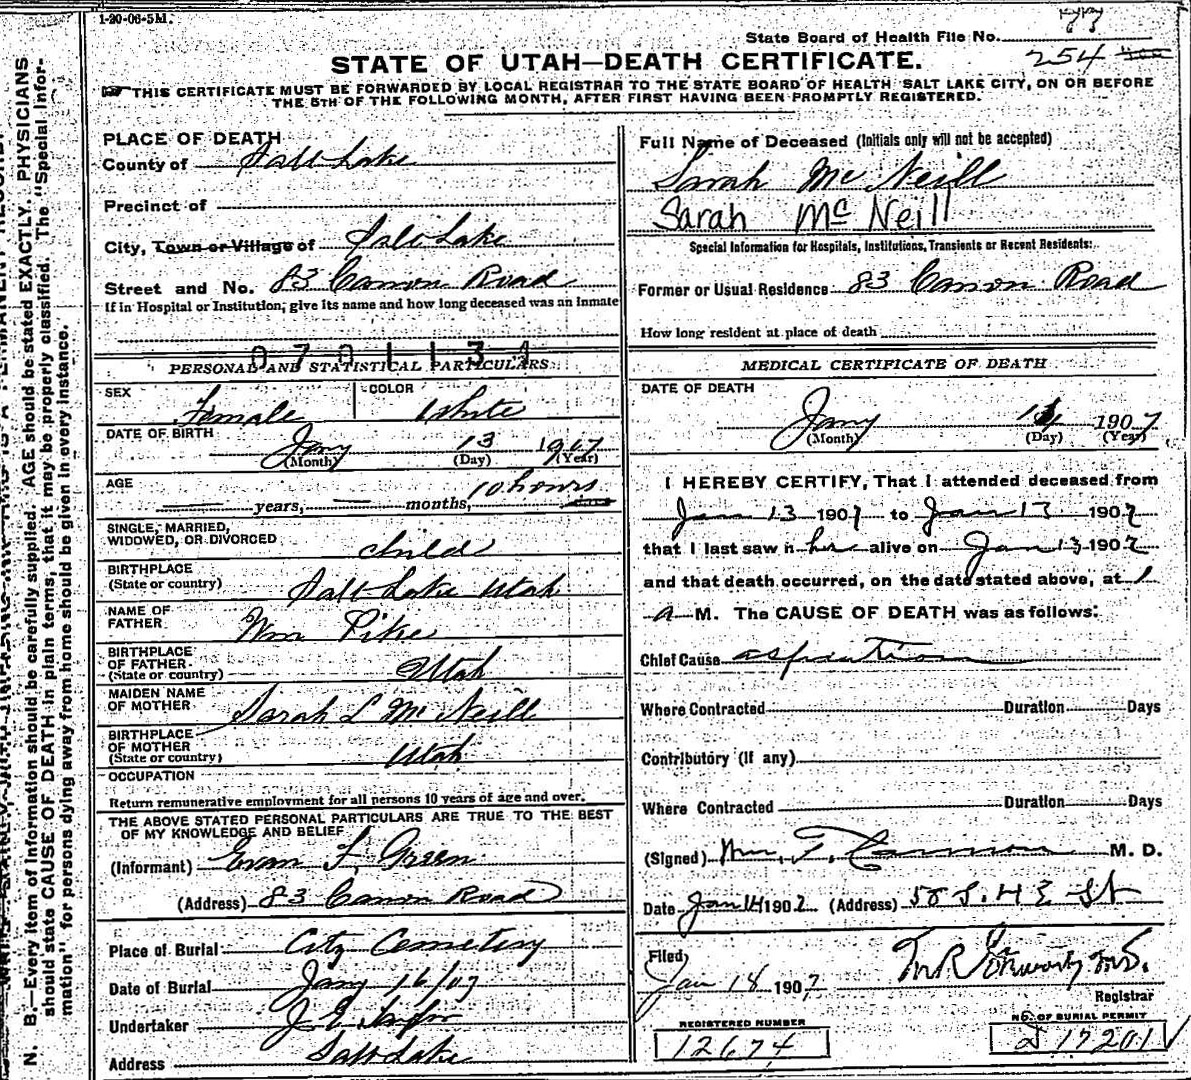 1-20-06-5M.
State Board of Health File No. 77
254
STATE OF UTAH—DEATH CERTIFICATE.
THIS CERTIFICATE MUST BE FORWARDED BY LOCAL REGISTRAR TO THE STATE BOARD OF HEALTH SALT LAKE CITY, ON OR BEFORE
THE 5TH OF THE FOLLOWING MONTH, AFTER FIRST HAVING BEEN PROMPTLY REGISTERED.
PLACE OF DEATH
County of Salt Lake
Precinct of
City, Town or Village of Salt Lake
Street and No. 83 Canon Road
If in Hospital or Institution, give its name and how long deceased was an inmate
0701131
PERSONAL AND STATISTICAL PARTICULARS
SEX Female COLOR White
DATE OF BIRTH Jany 13 1907
(Month) (Day) (Year)
AGE years, months, 10 hours
SINGLE, MARRIED,
WIDOWED, OR DIVORCED child
BIRTHPLACE
(State or country) Salt Lake Utah
NAME OF
FATHER Wm Pike
BIRTHPLACE
OF FATHER
(State or country) Utah
MAIDEN NAME
OF MOTHER Sarah L McNeill
BIRTHPLACE
OF MOTHER
(State or country) Utah
OCCUPATION
Return remunerative employment for all persons 10 years of age and over.
THE ABOVE STATED PERSONAL PARTICULARS ARE TRUE TO THE BEST
OF MY KNOWLEDGE AND BELIEF
(Informant) Evan F. Green
(Address) 83 Canon Road
Place of Burial City Cemetery
Date of Burial Jany 16/07
Undertaker J. E.
Address Salt Lake
Full Name of Deceased (Initials only will not be accepted)
Sarah McNeill
Sarah McNeill
Special Information for Hospitals, Institutions, Transients or Recent Residents:
Former or Usual Residence 83 Canon Road
How long resident at place of death
MEDICAL CERTIFICATE OF DEATH
DATE OF DEATH
Jany 14 1907
(Month) (Day) (Year)
I HEREBY CERTIFY, That I attended deceased from
Jan 13 1907 to Jan 13 1907
that I last saw h her alive on Jan 13 1907
and that death occurred, on the date stated above, at 1
a M. The CAUSE OF DEATH was as follows:
Chief Cause
Where Contracted Duration Days
Contributory (if any)
Where Contracted Duration Days
(Signed) Wm. T. Cannon M. D.
Date Jan 14 1907 (Address) 58 S. 4 E St
Filed
Jan 18 1907
Registrar
REGISTERED NUMBER
12674
NO. OF BURIAL PERMIT
D 17201
N. B.—Every item of information should be carefully supplied. AGE should be stated EXACTLY. PHYSICIANS
should state CAUSE OF DEATH in plain terms, that it may be properly classified. The "Special Infor-
mation" for persons dying away from home should be given in every instance.